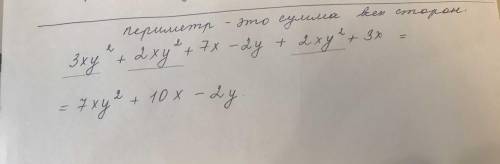 периметр - это сумма всех сторон.
3xy² + 2xy² + 7x - 2y + 2xy² + 3x =
= 7xy² + 10x - 2y.